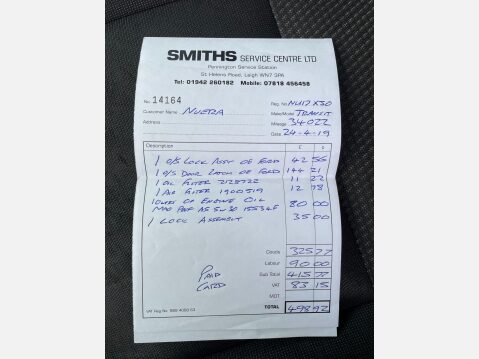 SMITHS SERVICE CENTRE LTD
Pennington Service Station
St Helens Road, Leigh WN7 3PA
Tel: 01942 260182 Mobile: 07818 456458
No. 14164 Reg. No.
Customer Name Make/Model TRANSIT
Address Mileage 34022
Date 24-4-19
Description £ p
1 O/S LOCK ASSY OE FORD 42 56
1 O/S DOOR LATCH OE FORD 144 21
1 OIL FILTER 11 22
1 AIR FILTER 1900519 12 78
OF ENGINE OIL
5W30 80 00
1 LOCK ASSEMBLY 35 00
Goods 325 77
Labour 90 00
Sub Total 415 77
PAID
CARD
VAT 83 15
MOT
VAT Reg No. TOTAL 498 92